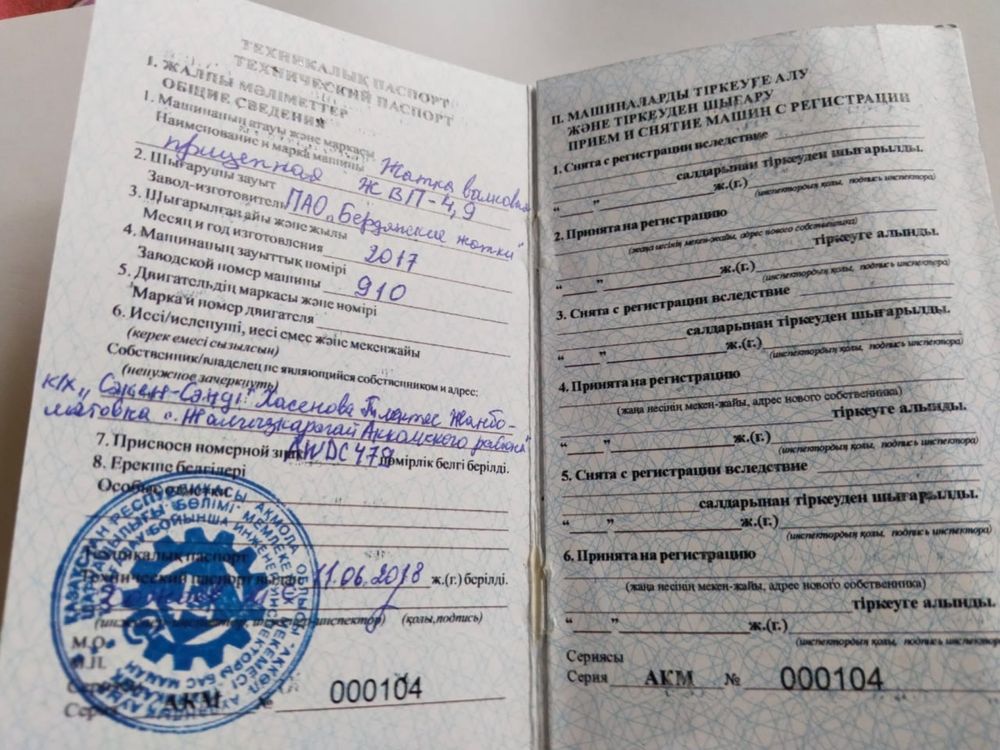 ТЕХНИКАЛЫҚ ПАСПОРТ
ТЕХНИЧЕСКИЙ ПАСПОРТ
I. ЖАЛПЫ МӘЛІМЕТТЕР
ОБЩИЕ СВЕДЕНИЯ
1. Машинаның атауы және маркасы
Наименование и марка машины Жатка валковая
прицепная ЖВП-4,9
2. Шығарушы зауыт
Завод-изготовитель ПАО „Бердянские жатки"
3. Шығарылған айы және жылы
Месяц и год изготовления 2017
4. Машинаның зауыттық нөмірі
Заводской номер машины 910
5. Двигательдің маркасы және нөмірі
Марка и номер двигателя
6. Иесі/иеленуші, иесі емес және мекенжайы
(керек емесі сызылсын)
Собственник/владелец не являющийся собственником и адрес:
(ненужное зачеркнуть)
к/х „Сәкен-Сәнді" Хасенова
с. Жалгизкарагай Аккольского района
7. Присвоен номерной знак AWDC479 нөмірлік белгі берілді.
8. Ерекше белгілері
Особые отметки
Техникалық паспорт
Технический паспорт выдан 11.06.2018 ж.(г.) берілді.
(инженер-инспектор, инженер-инспектор) (қолы, подпись)
М.О.
М.П.
Сериясы
Серия АКМ № 000104
ҚАЗАҚСТАН РЕСПУБЛИКАСЫ АҚМОЛА ОБЛЫСЫ
II. МАШИНАЛАРДЫ ТІРКЕУГЕ АЛУ
ЖӘНЕ ТІРКЕУДЕН ШЫҒАРУ
ПРИЕМ И СНЯТИЕ МАШИН С РЕГИСТРАЦИИ
1. Снята с регистрации вследствие
салдарынан тіркеуден шығарылды.
“ ” ж.(г.)
(инспектордың қолы, подпись инспектора)
2. Принята на регистрацию
(жаңа иесінің мекен-жайы, адрес нового собственника)
тіркеуге алынды.
“ ” ж.(г.)
(инспектордың қолы, подпись инспектора)
3. Снята с регистрации вследствие
салдарынан тіркеуден шығарылды.
“ ” ж.(г.)
(инспектордың қолы, подпись инспектора)
4. Принята на регистрацию
(жаңа несінің мекен-жайы, адрес нового собственника)
тіркеуге алынды.
“ ” ж.(г.)
(инспектордың қолы, подпись инспектора)
5. Снята с регистрации вследствие
салдарынан тіркеуден шығарылды.
“ ” ж.(г.)
(инспектордың қолы, подпись инспектора)
6. Принята на регистрацию
(жаңа несінің мекен-жайы, адрес нового собственника)
тіркеуге алынды.
“ ” ж.(г.)
(инспектордың қолы, подпись инспектора)
Сериясы
Серия АКМ № 000104